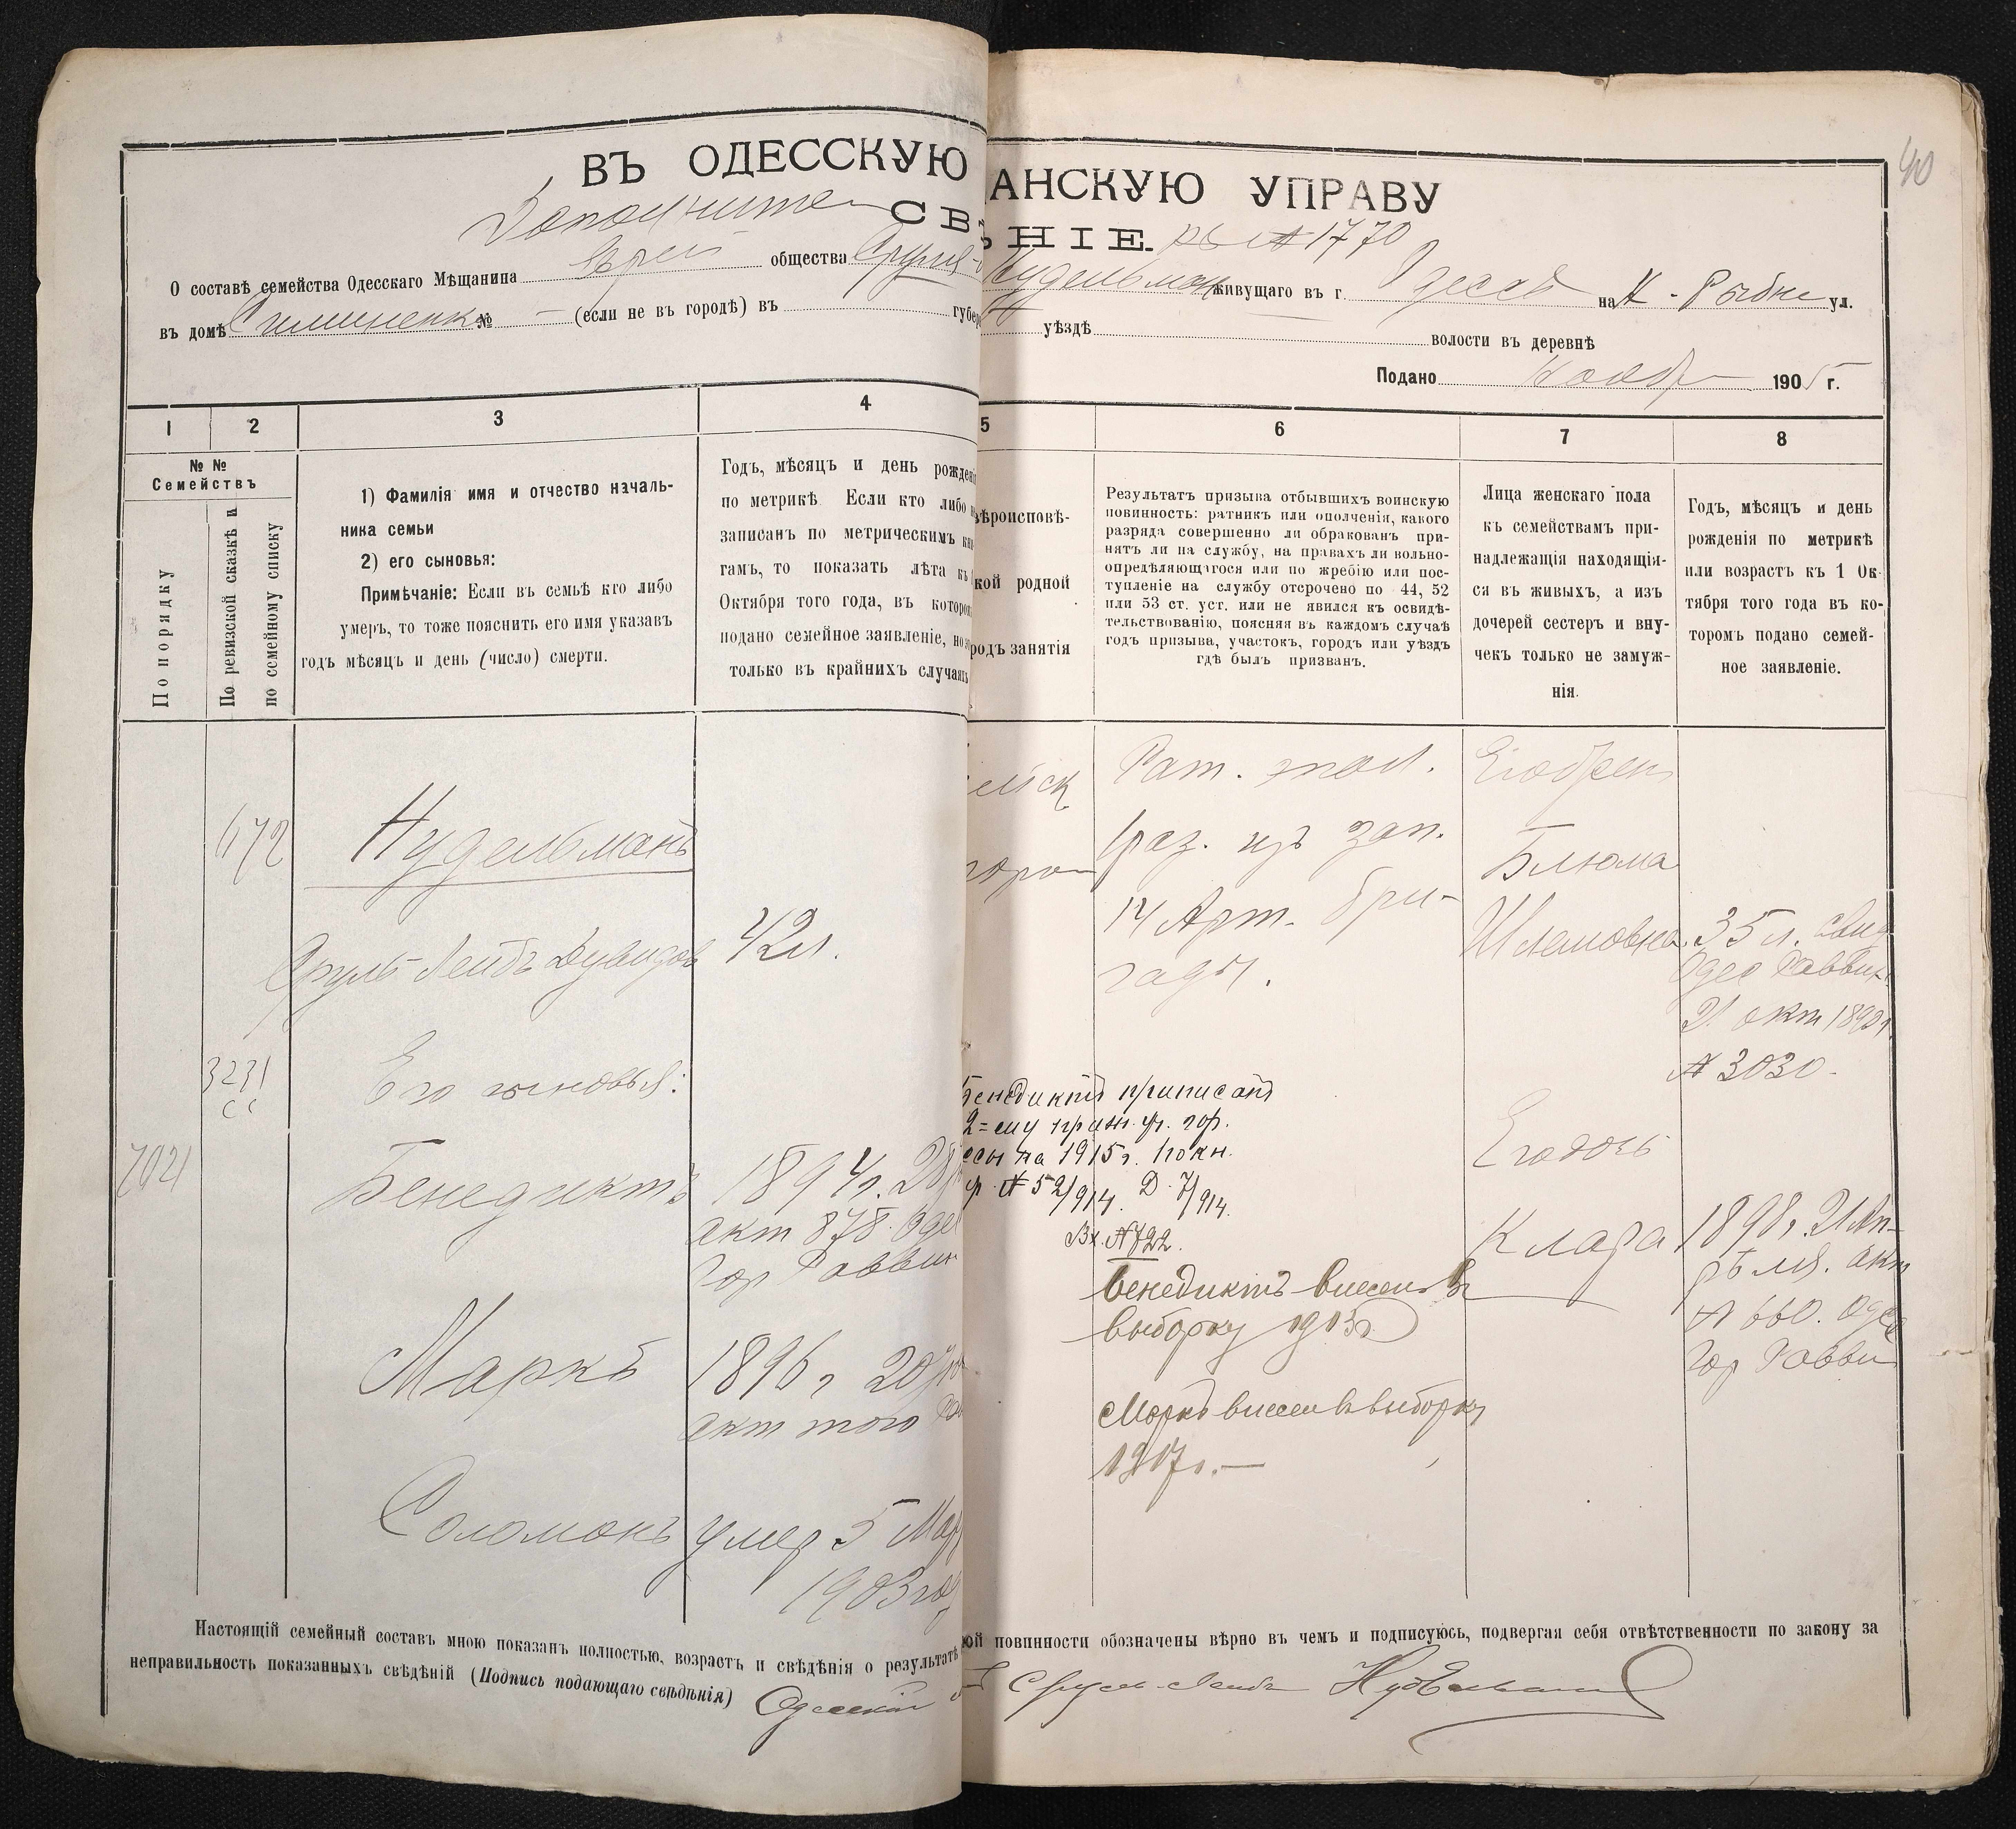 40
ВЪ ОДЕССКУЮ АНСКУЮ УПРАВУ
Дополнител СВ НІЕ. № 1770
О составѣ семейства Одесскаго Мѣщанина Еврей общества Сруля- Нудельман живущаго въ г. Одессѣ на Н-Рыбн ул.
въ домѣ № — (если не въ городѣ) въ губер уѣздѣ волости въ деревнѣ
Подано Ноябр 1905 г.
1 2 3 4 5 6 7 8
№ №
Семействъ
По порядку
По ревизской сказкѣ и
по семейному списку
1) Фамилія имя и отчество началь-
ника семьи
2) его сыновья:
Примѣчаніе: Если въ семьѣ кто либо
умеръ, то тоже пояснить его имя указавъ
годъ мѣсяцъ и день (число) смерти.
Годъ, мѣсяцъ и день рожденія
по метрикѣ. Если кто либо
записанъ по метрическимъ кни
гамъ, то показать лѣта къ
Октября того года, въ которо
подано семейное заявленіе, но
только въ крайнихъ случаяхъ
вѣроисповѣ-
кой родной
родъ занятія
Результатъ призыва отбывшихъ воинскую
повинность: ратникъ или ополченія, какого
разряда совершенно ли обракованъ при-
нятъ ли на службу, на правахъ ли вольно-
опредѣляющагося или по жребію или пос-
тупленіе на службу отсрочено по 44, 52
или 53 ст. уст. или не явился къ освидѣ-
тельствованію, поясняя въ каждомъ случаѣ
годъ призыва, участокъ, городъ или уѣздъ
гдѣ былъ призванъ.
Лица женскаго пола
къ семействамъ при-
надлежащія находящія-
ся въ живыхъ, а изъ
дочерей сестеръ и вну-
чекъ только не замуж-
нія.
Годъ, мѣсяцъ и день
рожденія по метрикѣ
или возрастъ къ 1 Ок-
тября того года въ ко-
торомъ подано семей-
ное заявленіе.
672
Нудельманъ
Сруль Лейбъ Дувидов
42 л.
3231
сс
Его сыновья:
7021
Бенедиктъ
1894 г. 28
акт 878. Оде
Гор Раввин
Маркъ
1896 г 20
акт того
Соломонъ
умер 5 Мар
1903 год
ейск
Рат. опол.
1 раз. изъ зап.
14 Арт. бри-
гады.
Бенедиктъ приписанъ
2=му приз. уч. гор.
ссы на 1915 г. по кн.
№ 52/914. Д. 7/914.
Вх. № 722.
Бенедиктъ внесен въ
выборку 1913 г
Маркъ внесен въ выборку
1917 г. —
Его жена
Блюма
Шлемовна
35 л. свид
Одес Раввин
21 окт 1892 г
№ 3030.
Его дочь
Клара
1898 г. 21 Ап-
рѣля. акт
№ 660. Одес
Гор Равви
Настоящій семейный составъ мною показанъ полностью, возрастъ и свѣдѣнія о результатѣ кой повинности обозначены вѣрно въ чемъ и подписуюсь, подвергая себя отвѣтственности по закону за
неправильность показанныхъ свѣдѣній (Подпись подающаго свѣдѣнія) Одесскій Сруль-Лейбъ Нудельманъ